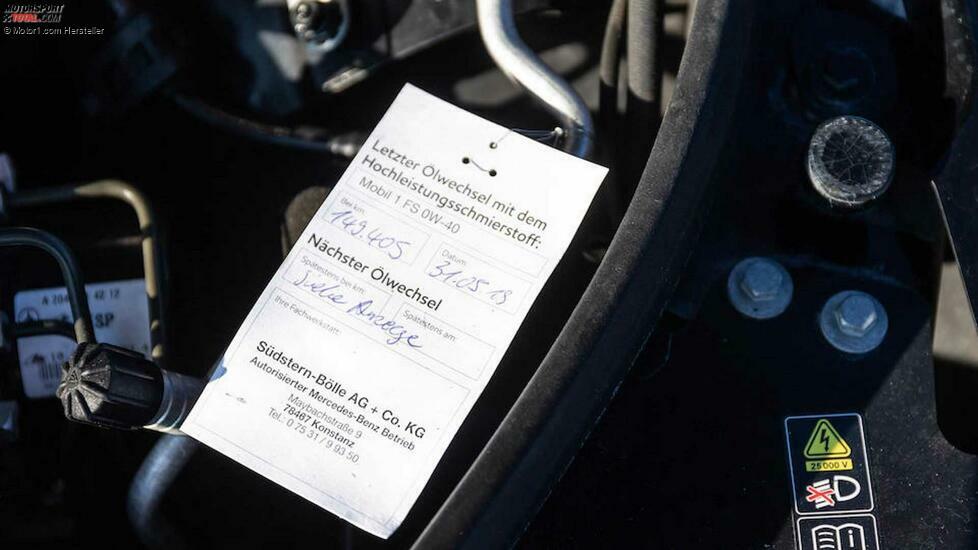 MOTORSPORT
TOTAL.COM
© Motor1.com Hersteller
Letzter Ölwechsel mit dem
Hochleistungsschmierstoff:
Mobil 1 FS 0W-40
Bei km:
149.405
Datum:
31.05.19
Nächster Ölwechsel
Spätestens bei km:
Spätestens am:
Siehe Anzeige
Ihre Fachwerkstatt:
Südstern-Bölle AG + Co. KG
Autorisierter Mercedes-Benz Betrieb
Maybachstraße 9
78467 Konstanz
Tel.: 0 75 31 / 9 93 50
A 204
4 12
SP
25 000 V